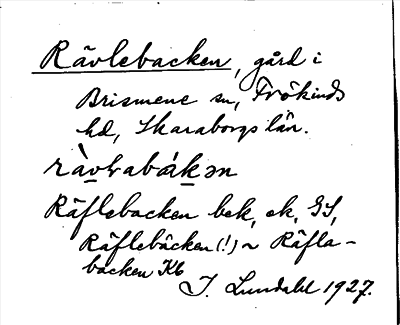 Rävlebacken, gård i
Brismene sn, Frökinds
hd, Skaraborgs län.
rὰvlabákən
Räflebacken bek, ek, GS,
Räflebäcken (!) ~ Räfla-
backen Kb
I. Lundahl 1927.